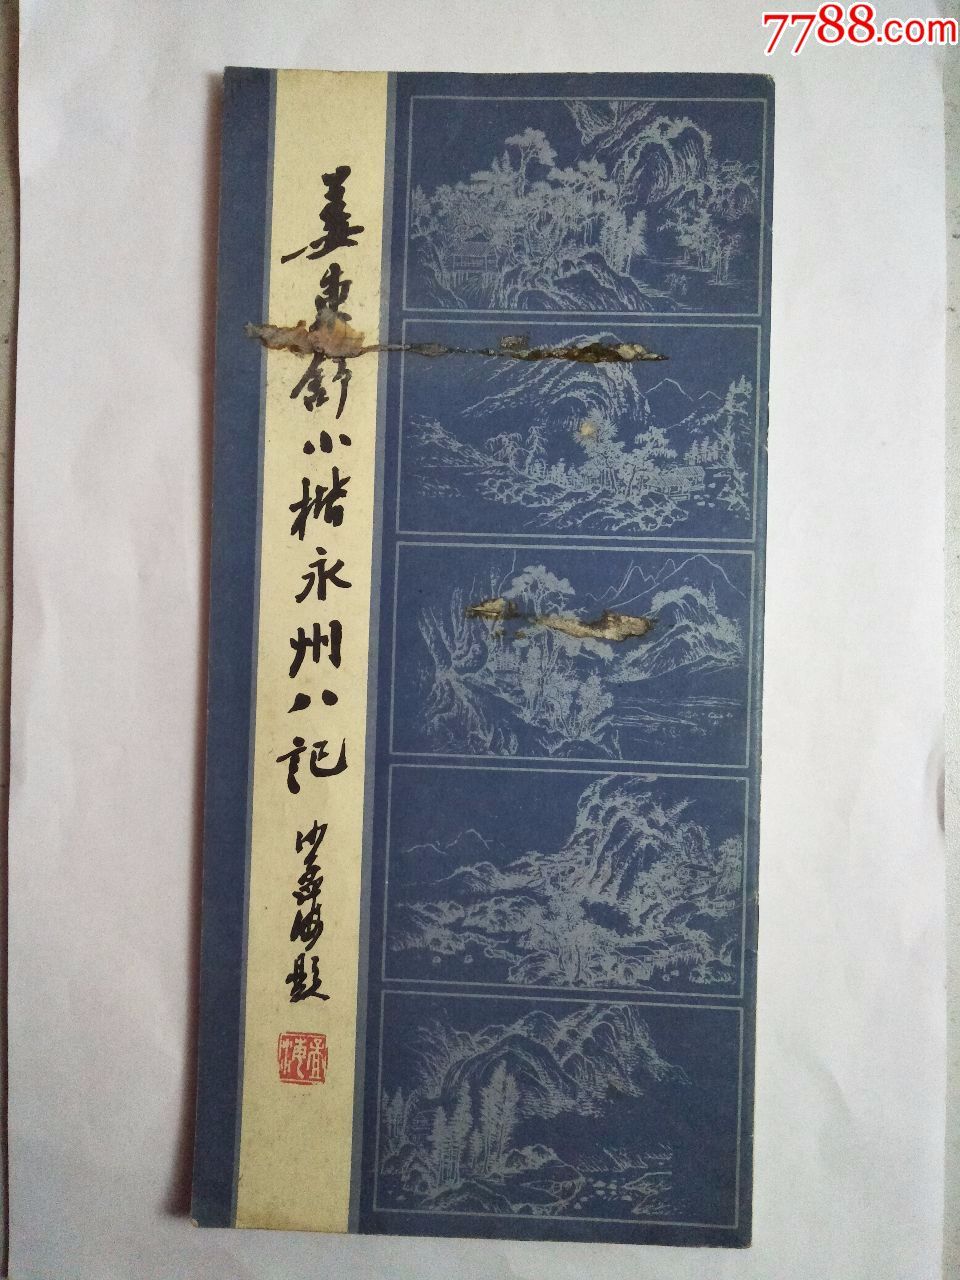 7788.com
姜東舒小楷永州八記
沙孟海題